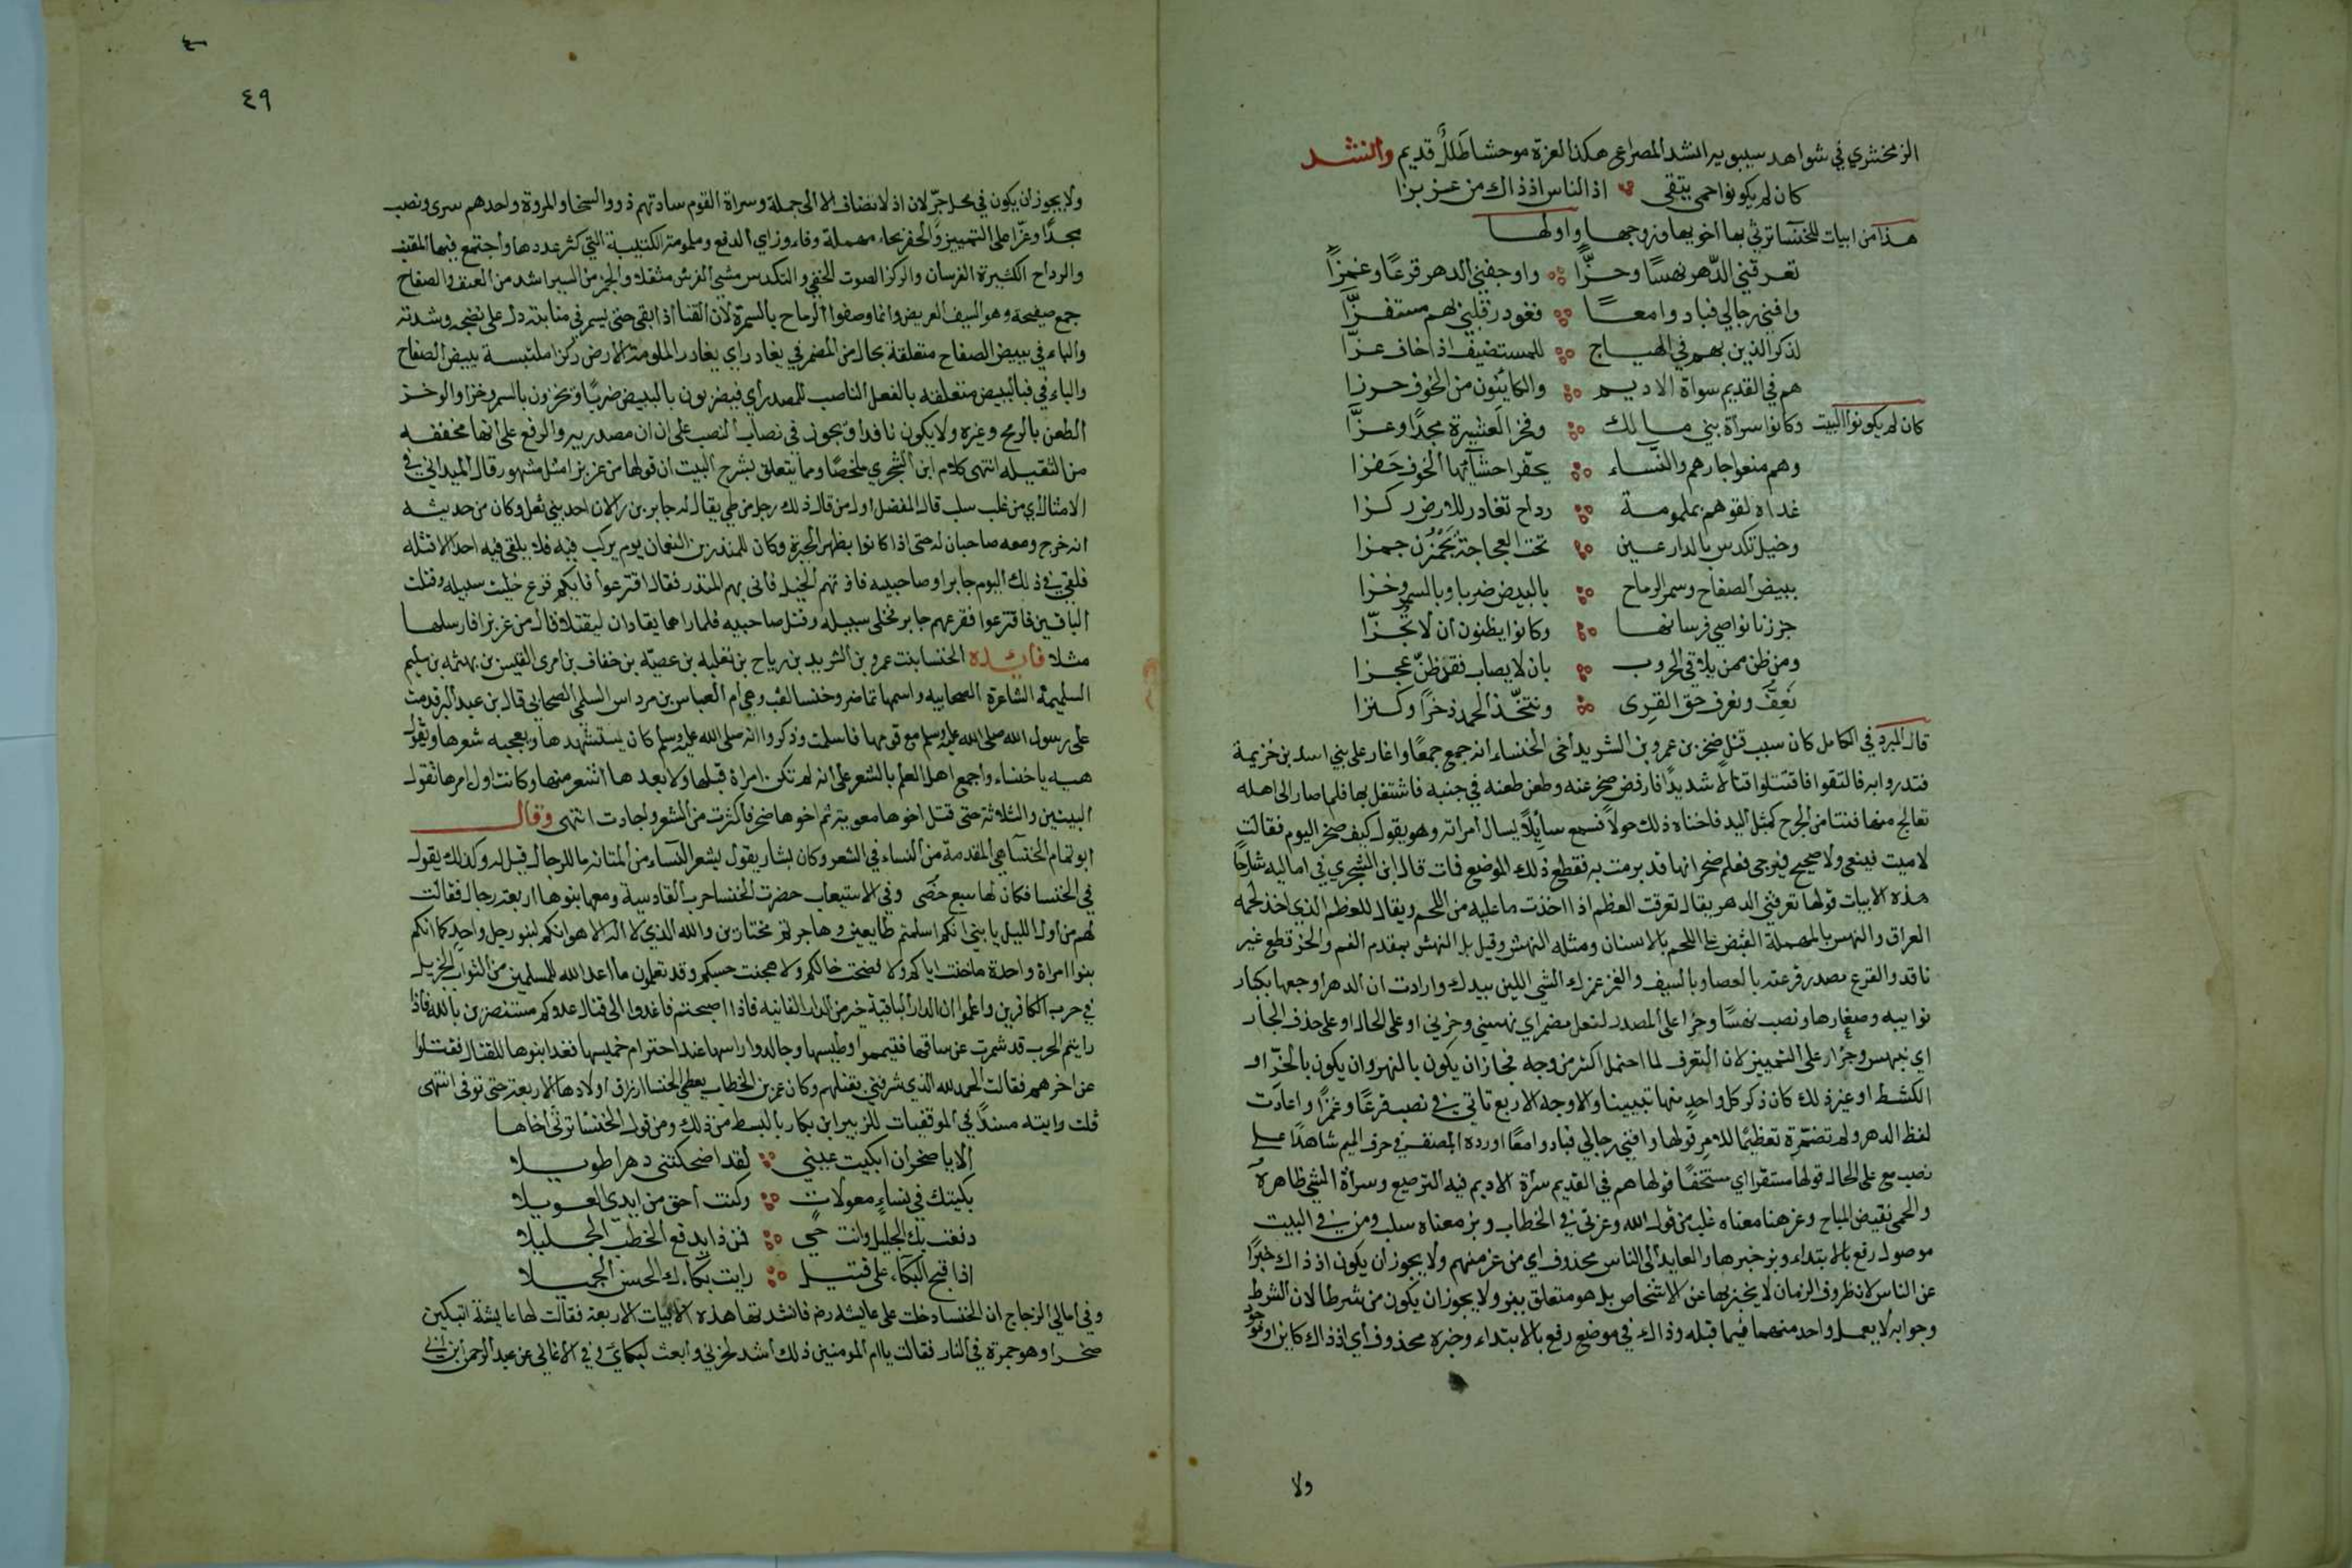 الزمخشري في شواهد سيبويه انشد المصراع هكذا لعزة موحشا طلل قديم وانشد
كان لم يكونوا حمى يتقى اذ الناس اذ ذاك من عز بزا
هذا من ابيات للخنسا ترثي بها اخويها وزوجها واولها
تعرقني الدهر نهسًا وحزًّا واوجفني الدهر قرعًا وغمزًا
وافنى رجالي فبادوا معًا فغودر قلبي بهم مستفزًّا
لذكر الذين بهم في الهياج للمستضيف اذا خاف عزّا
هم في القديم سراة الاديم والكاينون من الخوف حرزا
كان لم يكونوا البيت وكانوا سراة بني مالك وفخر العشيرة مجدًا وعزًّا
وهم منعوا جارهم والنساء يحفز احشائها الخوف حفزا
غداة لقوهم بملمومة رداح تغادر للارض ركزا
وخيل تكدس بالدارعين تحت العجاجة يجمزن جمزا
ببيض الصفاح وسمر الرماح بالبيض ضربا وبالسمر وخزا
جززنا نواصي فرسانها وكانوا يظنون ان لا تُجزّا
ومن ظن ممن يلاقي الحروب بان لا يصاب فقد ظنّ عجزا
نَعِفّ ونعرف حق القرى ونتخذ الحمد ذخرًا وكنزا
قال المبرد في الكامل كان سبب قتل صخر بن عمرو بن الشريد اخى الخنساء انه جمع جمعًا واغار على بني اسد بن خزيمة
فنذروا به فالتقوا فاقتتلوا قتالا شديدًا فارفض صخر عنه وطعن طعنه في جنبه فاشتغل بها فلما صار الى اهله
تعالج منها فنتا من الجرح كمثل اليد فاضناه ذلك حولا فسمع سايلًا يسال امراته وهو يقول كيف صخر اليوم فقالت
لا ميت فينعى ولا صحيح فيرجى فعلم صخر انها قد برمت به فقطع ذلك الموضع فمات قال ابن الشجري في اماليه شارحًا
هذه الابيات قولها تعرقني الدهر يقال تعرقت العظم اذا اخذت ما عليه من اللحم ويقال للعظم الذي اخذ لحمه
العراق والنهس بالمهملة القبض على اللحم بالاسنان ومثله النهش وقيل بل النهش بمقدم الفم والحز قطع غير
نافذ والقرع مصدر قرعته بالعصا وبالسيف والغمز غمزك الشي اللين بيدك وارادت ان الدهر اوجعها بكبار
نوايبه وصغارها ونصب نهسًا وحزا على المصدر لفعل مضمر اي نهسني وحزني او على الحال او على حذف الجار
اي بنهس وحز او على التمييز لان التعرف لما احتمل اكثر من وجه فجاز ان يكون بالنهس وان يكون بالحزّ او
الكشط او غير ذلك كان ذكر كل واحدٍ منها تبيينا والاوجه الاربع تاتي في نصب قرعًا وغمزًا واعادت
لفظ الدهر ولم تضمره تعظيمًا للامر قولها وافنى رجالي فبادوا معًا اورده المصنف في حرف الميم شاهدًا على
نصب مع على الحال قولها مستفزا اي مستخفًا قولها هم في القديم سراة الاديم فيه الترصيع وسراة الشي ظاهره
والحمى نقيض المباح وعز هنا معناه غلب من قول الله وعزني في الخطاب وبز معناه سلب ومن في البيت
موصول رفع بالابتداء وبز خبرها والعايد الى الناس محذوف اي من عز منهم ولا يجوز ان يكون اذ ذاك خبرًا
عن الناس لان ظروف الزمان لا يخبر بها عن الاشخاص بل هو متعلق ببز ولا يجوز ان يكون من شرطا لان الشرط
وجوابه لا يعمل واحد منهما فيما قبله وذاك في موضع رفع بالابتداء وخبره محذوف اي اذ ذاك كاين او موجود
ولا
٤٩
ولا يجوز ان يكون في محل جرّ لان اذ لا تضاف الا الى جملة وسراة القوم ساداتهم ذووا السخا والمروة واحدهم سرى ونصب
مجدًا وعزًا على التمييز والحفز بحاء مهملة وفاء وزاي الدفع وملمومة الكتيبة التي كثر عددها واجتمع فيها المقنب
والرداح الكثيرة الفرسان والركز الصوت الخفي والتكدس مشي الفرس مثقلا والجمز من السير اشد من العنق والصفاح
جمع صفيحة وهو السيف العريض وانما وصفوا الرماح بالسمرة لان القنا اذا بقى حتى يسمر في منابته دل على نضجه وشدته
والباء في ببيض الصفاح متعلقة بحال من المضمر في يغادر اي يغادر الملمومة للارض ركزا ملتبسة ببيض الصفاح
والباء في فبالبيض متعلقه بالفعل الناصب للمصدر اي فيضربون بالبيض ضربًا ويخزون بالسمر وخزا والوخز
الطعن بالرمح وغيره ولا يكون نافذا ويجوز في نصاب النصب على ان ان مصدرييه والرفع على انها مخففه
من الثقيله انتهى كلام ابن الشجري ملخصًا ومما يتعلق بشرح البيت ان قولها من عز بز امثل مشهور قال الميداني في
الامثال اي من غلب سلب قال المفضل اول من قال ذلك رجل من طي يقال له جابر بن رالان احد بني ثعل وكان من حديثه
انه خرج ومعه صاحبان له حتى اذا كانوا بظهر الحيرة وكان للمنذر بن النعمان يوم يركب فيه فلا يلقى فيه احدا الا قتله
فلقى في ذلك اليوم جابرا وصاحبيه فاخذتهم الخيل فاتى بهم المنذر فقال اقترعوا فايكم قرع خليت سبيله وقتلت
الباقين فاقترعوا فقرعهم جابر فخلى سبيله وقتل صاحبيه فلما راهما يقادان ليقتلا قال من عز بز افارسلها
مثلا فائده الخنسا بنت عمرو بن الشريد بن رياح بن ثعلبه بن عصيّه بن خفاف بن امرى القيس بن بهثه بن سليم
السليميه الشاعرة الصحابيه واسمها تماضر وخنسا لقب وهي ام العباس بن مرداس السلمى الصحابي قال ابن عبد البر قدمت
على رسول الله صلى الله عليه وسلم مع قومها فاسلمت وذكروا انه صلى الله عليه وسلم كان يستنشدها ويعجبه شعرها ويقول
هيه يا خنساء واجمع اهل العلم بالشعر على انه لم تكن امراة قبلها ولا بعدها اشعر منها وكانت اول امرها تقول
البيتين والثلاثة حتى قتل اخوها معوية ثم اخوها صخر فاكثرت من الشعر واجادت انتهى وقال
ابو تمام الخنسآ هي المقدمة من النساء في الشعر وكان بشار يقول لشعر النساء من المتانه ما للرجال قيل له وكذلك يقول
في الخنسا فكان لها سبع خصى وفي الاستيعاب حضرت الخنسا حرب القادسية ومعها بنوها اربعة رجال فقالت
لهم من اول الليل يا بني انكم اسلمتم طايعين وهاجرتم مختارين والله الذي لا اله الا هو انكم لبنو رجل واحد كما انكم
بنوا امراة واحدة ما خنت اباكم ولا فضحت خالكم ولا هجنت حسبكم وقد تعلمون ما اعد الله للمسلمين من الثواب الجزيل
في حرب الكافرين واعلموا ان الدار الباقية خير من الدار الفانيه فاذا اصبحتم فاغدوا الى قتال عدوكم مستنصرين بالله فاذا
رايتم الحرب قد شمرت عن ساقها فتيمموا وطيسها وجالدوا راسها عند احترام خميسها فغدا بنوها للقتال فقتلوا
عن اخرهم فقالت الحمد لله الذي شرفني بقتلهم وكان عمر بن الخطاب يعطي الخنسا ارزاق اولادها الاربعة حتى توفى انتهى
قلت رايته مسندًا في الموفقيات للزبير ابن بكار بابسط من ذلك ومن قول الخنسا ترثي اخاها
الا يا صخر ان ابكيت عيني لقد اضحكتني دهرا طويلا
بكيتك في نساءٍ معولات وكنت احق من ابدى العويلا
دفعت بك الجليل وانت حي فمن ذا يدفع الخطب الجليلا
اذا قبح البكاء على قتيل رايت بكاءك الحسن الجميلا
وفي امالي الزجاج ان الخنسا دخلت على عايشه رضم فانشدتها هذه الابيات الاربعة فقالت لها عايشة اتبكين
صخرا وهو جمرة في النار فقالت يا ام المومنين ذلك اشد لحزني وابعث لبكايَ وفي الاغاني عن عبد الرحمن ابن ابي